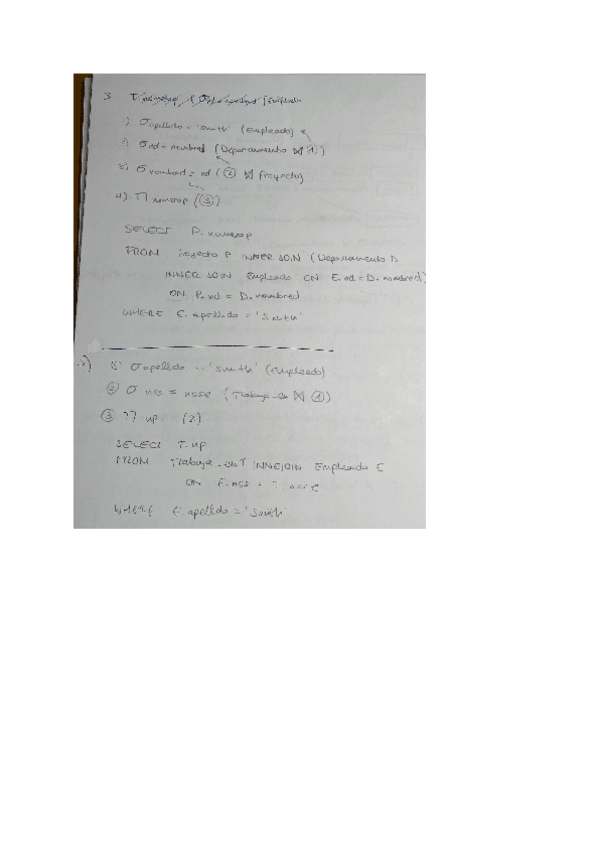 3
1) σ apellido = 'Smith' (Empleado)
2) σ nd = nombred (Departamento ⋈ ①)
3) σ nombred = nd (② ⋈ Proyecto)
4) Π numerop (③)
SELECT P.numerop
FROM Proyecto P INNER JOIN (Departamento D
INNER JOIN Empleado ON E.nd = D.nombred)
ON P.nd = D.nombred
WHERE E.apellido = 'Smith'
σ apellido = 'Smith' (Empleado)
② σ nss = nsse (Trabaja-en ⋈ ①)
③ Π np (2)
SELECT T.np
FROM Trabaja-en T INNEJOIN Empleado E
ON E.nss = T.nsse
WHERE E.apellido = 'Smith'